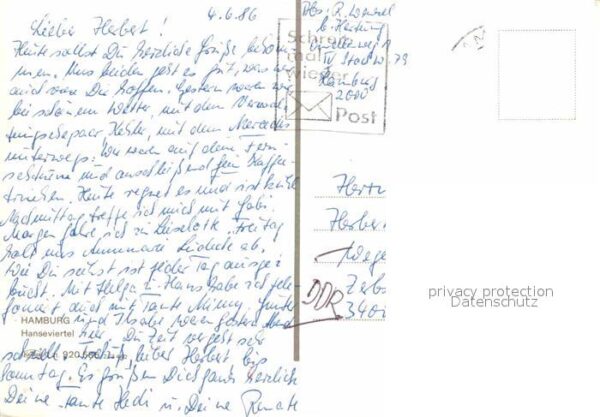 4.6.86
Lieber Herbert!
Heute sollst Du herzliche Grüße bekom-
men. Uns beiden geht es gut, was wir
auch von Dir hoffen. Gestern waren wir
bei schönem Wetter mit dem
mit dem Mercedes
unterwegs. Wir waren auf dem Fern
und anschließend zum Kaffee
trinken. Heute regnet es und ist kühl
Nachmittag treffe ich mich mit Gabi.
Morgen fahre ich zu Liselotte. Freitag
holt uns Annemarie ab.
Wie Du siehst ist jeder Tag ausge
bucht. Mit Helga u. Hans habe ich tele-
foniert auch mit Tante
und waren gestern Abend
hier. Die Zeit vergeht sehr
schnell. Tschüß, lieber Herbert bis
Sonntag. Es grüßen Dich ganz herzlich
Deine Tante Hedi u. Deine Renate
HAMBURG
Hanseviertel
Abs. R.
b. Hertwig
Hamburg
2000
Schreib
mal
wieder
Post
Herrn
Herbert
DDR
3400
privacy protection
Datenschutz